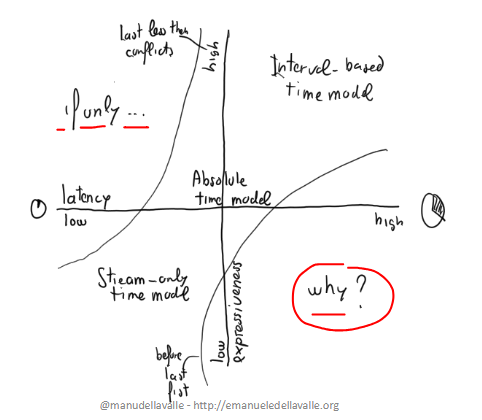 Last less then
conflicts
high
Interval-based
time model
if only ...
Absolute
time model
latency
low
high
Stream-only
time model
expressiveness
low
why?
before
last
fist
@manudellavalle - http://emanueledellavalle.org